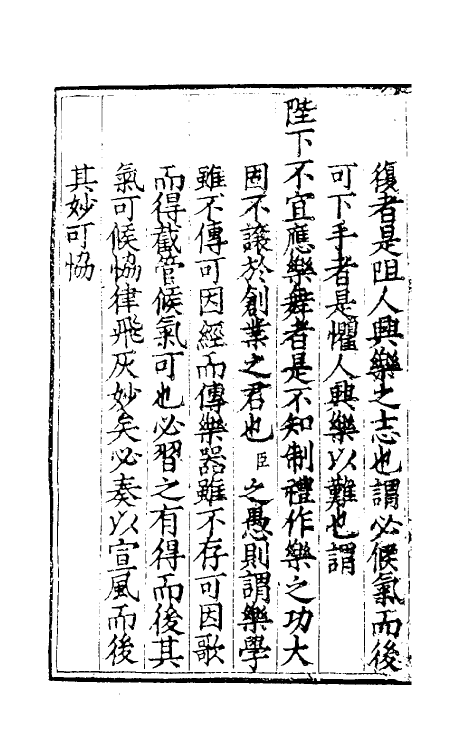 復者是阻人興樂之志也謂必候氣而後
可下手者是懼人興樂以難也謂
陛下不宜應樂舞者是不知制禮作樂之功大
固不讓於創業之君也臣之愚則謂樂學
雖不傳可因經而傳樂器雖不存可因歌
而得截管候氣可也必習之有得而後其
氣可候恊律飛灰妙矣必奏以宣風而後
其妙可恊